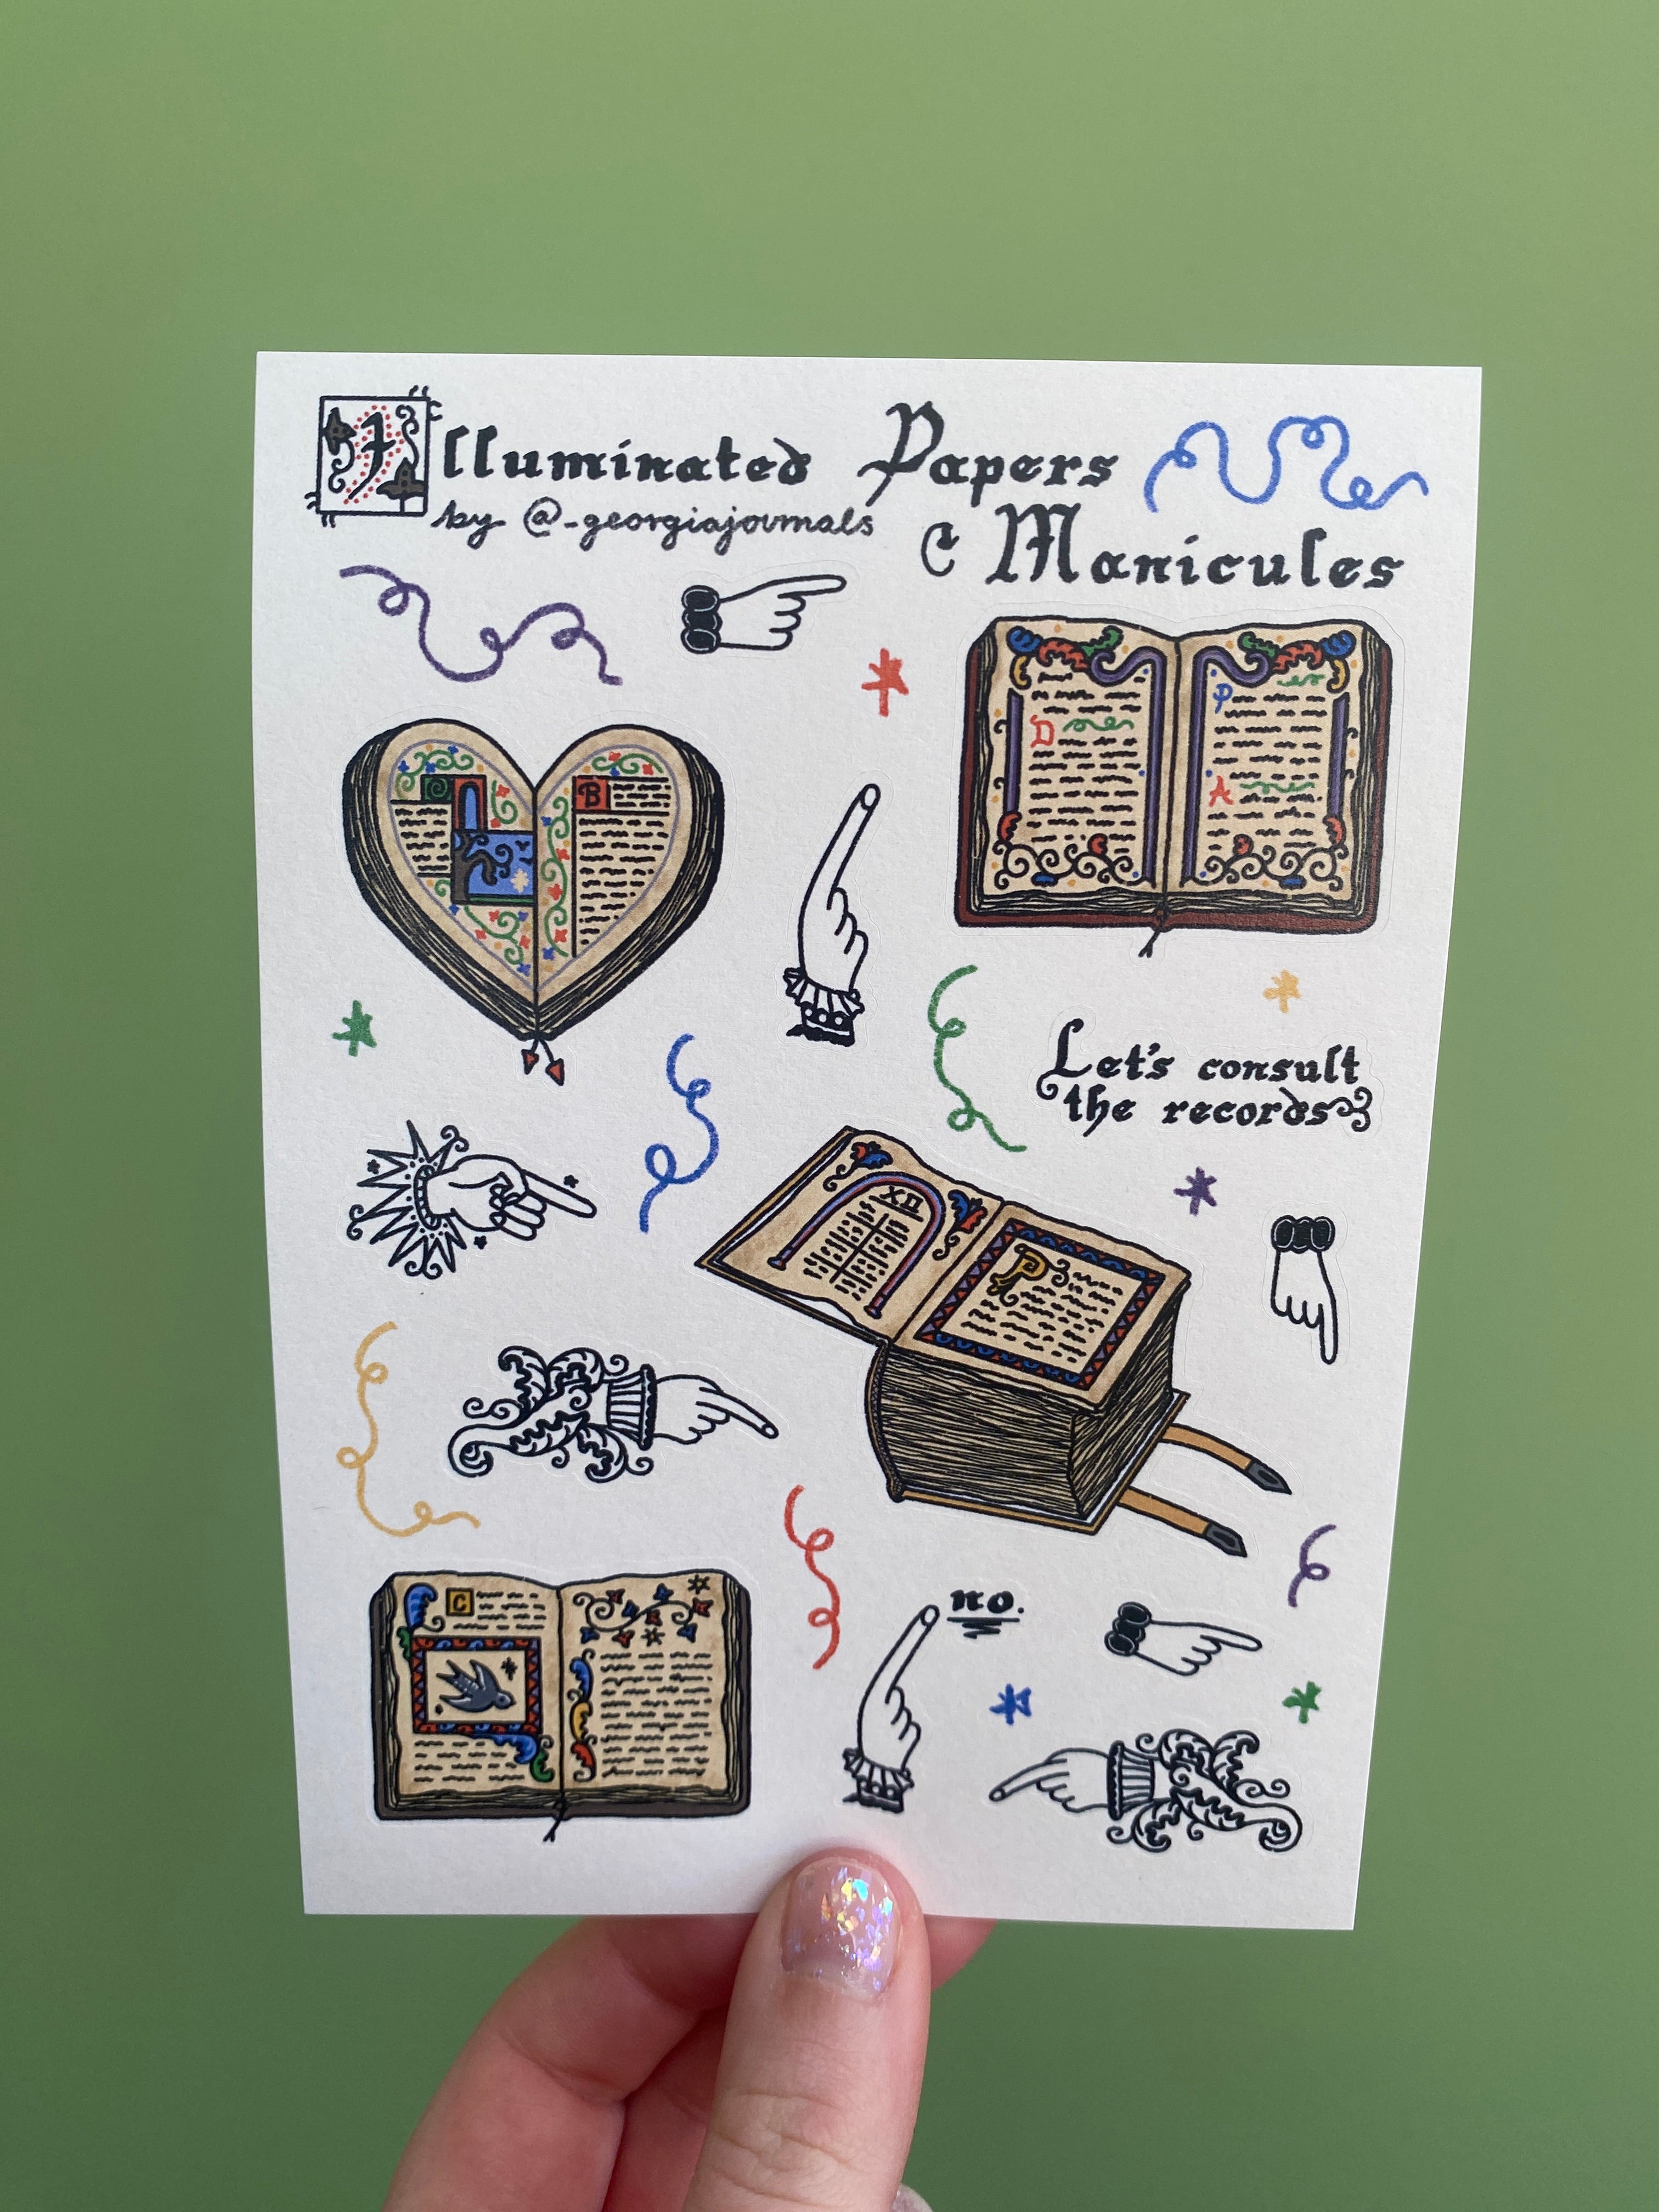 Illuminated Papers
by @-georgiajournals
& Manicules
B
D
P
A
Let's consult
the records
XII
P
C
no.